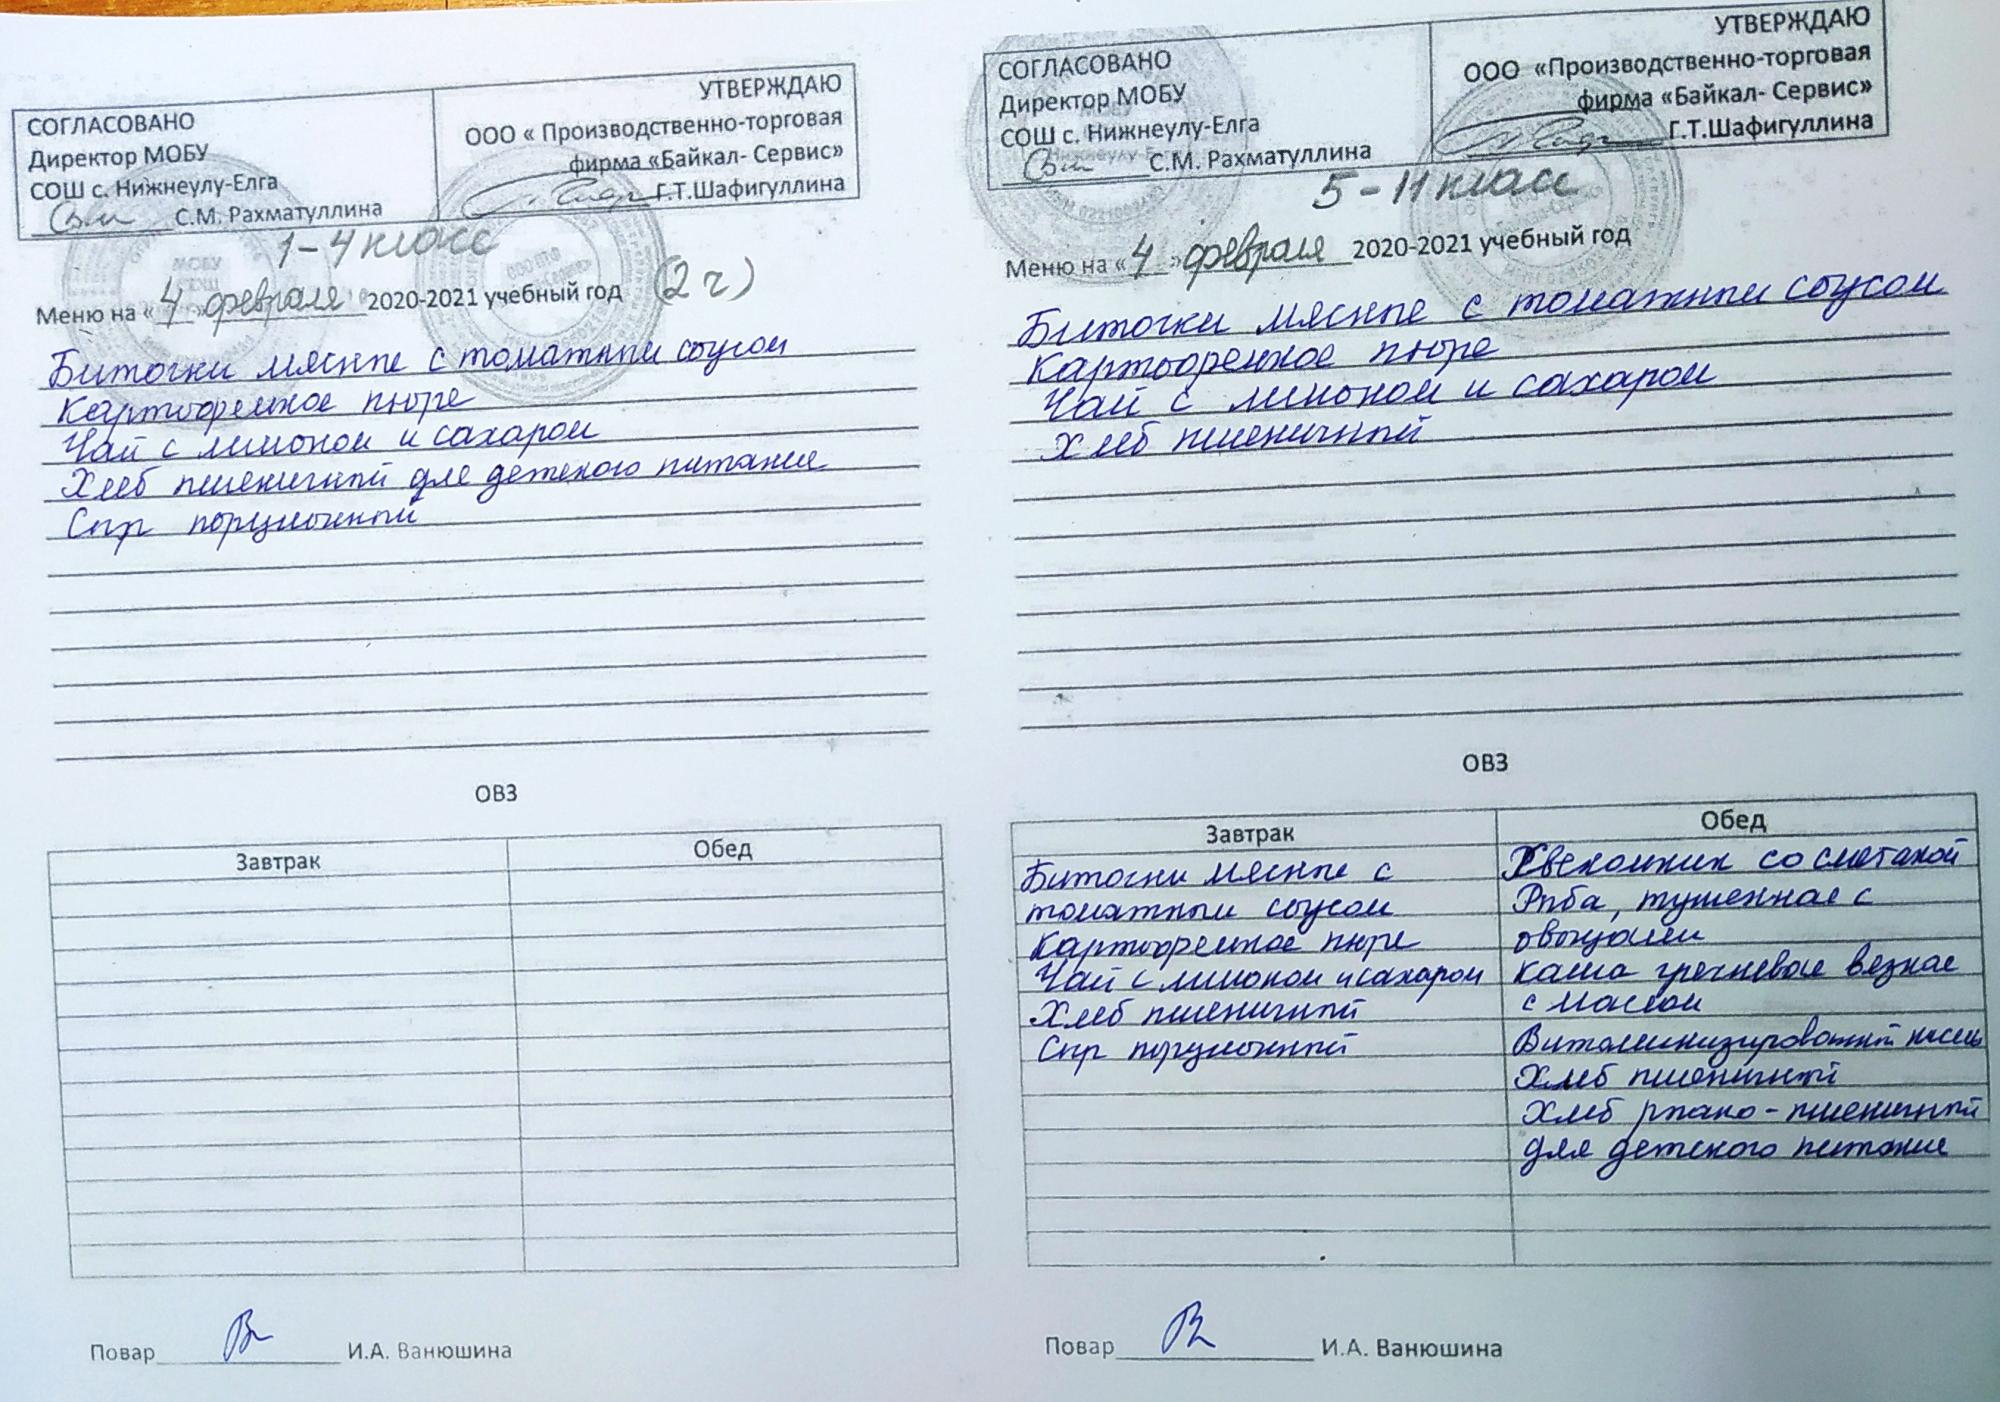 СОГЛАСОВАНО
Директор МОБУ
СОШ с. Нижнеулу-Елга
С.М. Рахматуллина
УТВЕРЖДАЮ
ООО « Производственно-торговая
фирма «Байкал- Сервис»
Г.Т.Шафигуллина
1-4 класс
Меню на «4» февраля 2020-2021 учебный год (2 г)
Биточки мясные с томатным соусом
Картофельное пюре
Чай с лимоном и сахаром
Хлеб пшеничный для детского питания
Сыр порционный
ОВЗ
Завтрак
Обед
Повар И.А. Ванюшина
СОГЛАСОВАНО
Директор МОБУ
СОШ с. Нижнеулу-Елга
С.М. Рахматуллина
УТВЕРЖДАЮ
ООО «Производственно-торговая
фирма «Байкал- Сервис»
Г.Т.Шафигуллина
5-11 класс
Меню на «4» февраля 2020-2021 учебный год
Биточки мясные с томатным соусом
Картофельное пюре
Чай с лимоном и сахаром
Хлеб пшеничный
ОВЗ
Завтрак
Биточки мясные с
томатным соусом
Картофельное пюре
Чай с лимоном и сахаром
Хлеб пшеничный
Сыр порционный
Обед
Свекольник со сметаной
Рыба, тушенная с
овощами
каша гречневая вязкая
с маслом
Витаминизированный кисель
Хлеб пшеничный
Хлеб ржано-пшеничный
для детского питания
Повар И.А. Ванюшина